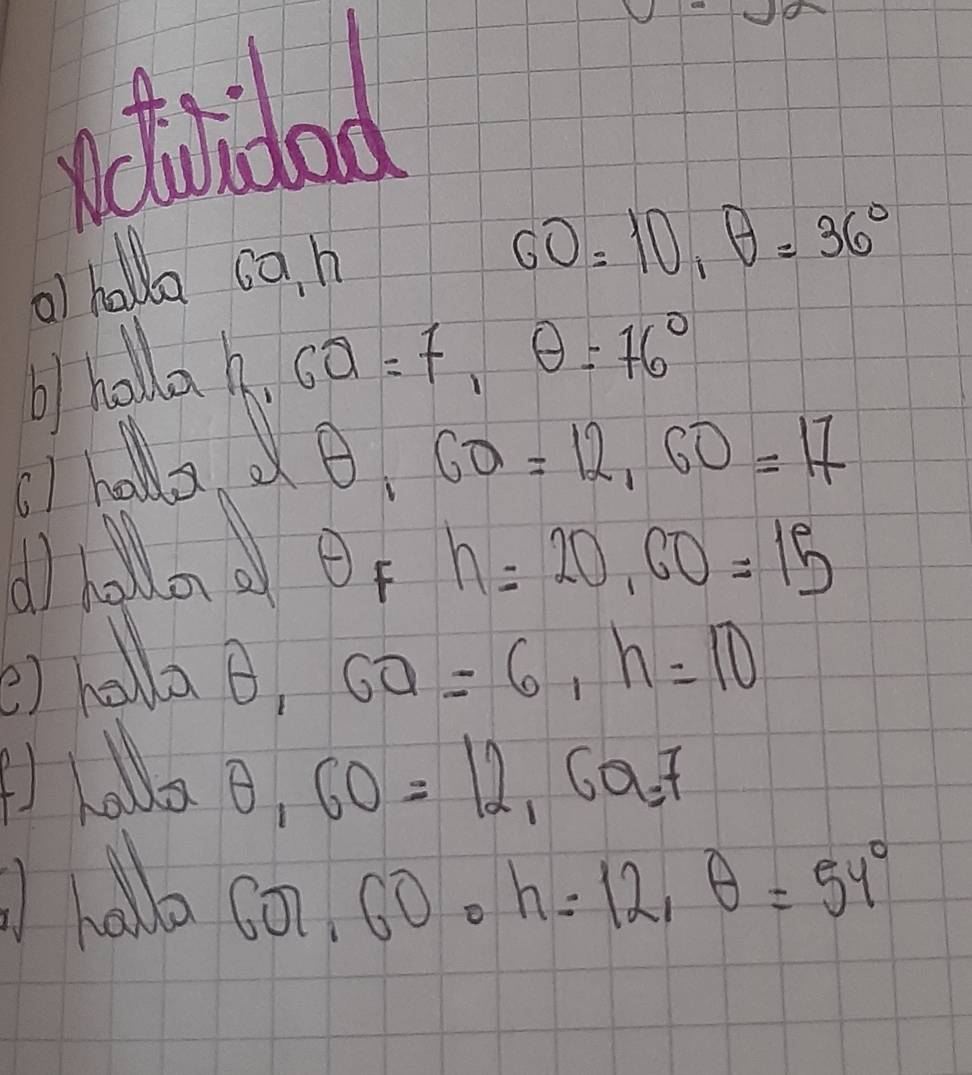 Actividad
a) halla Ca, h CO = 10, θ = 36°
b) halla h, Ca = 7, θ = 76°
c) halla el θ, Ca = 12, CO = 17
d) halla el θ, h = 20, CO = 15
e) halla θ, Ca = 6, h = 10
f) halla θ, CO = 12, Ca = 7
halla Ca, CO . h = 12, θ = 54°